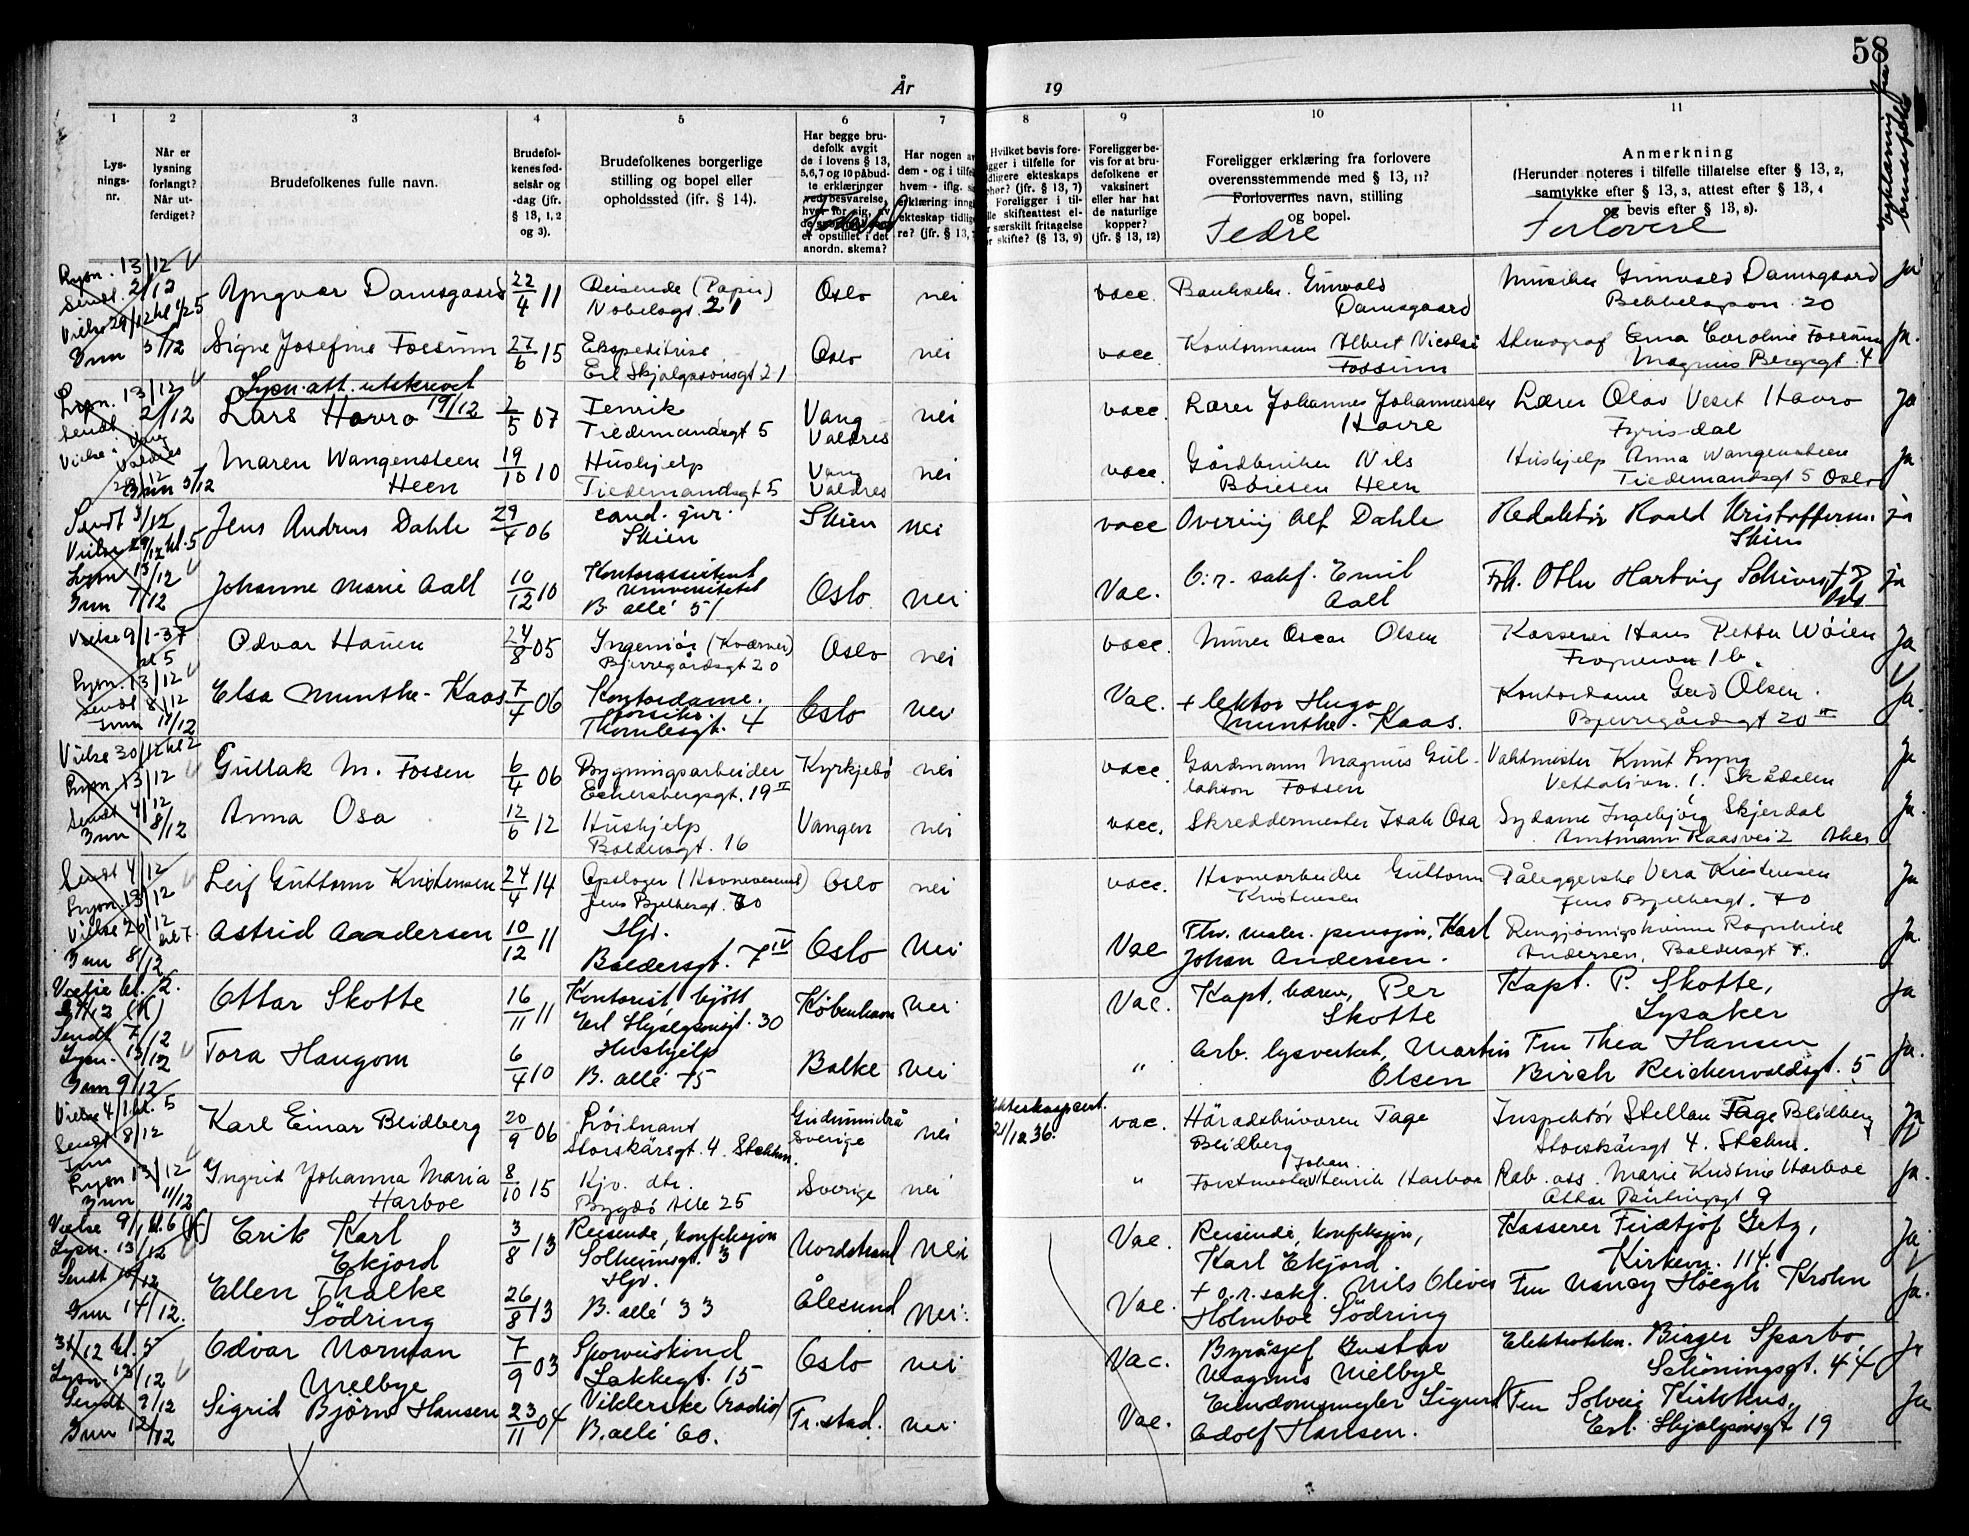 58
År
19
1
2
3
4
5
6
7
8
9
10
11
Lys-
nings-
nr.
Når er
lysning
forlangt?
Når ut-
ferdiget?
Brudefolkenes fulle navn.
Brudefol-
kenes fød-
selsår og
-dag (jfr.
§ 13, 1, 2
og 3).
Brudefolkenes borgerlige
stilling og bopel eller
opholdssted (jfr. § 14).
Har begge bru-
defolk avgit
de i lovens § 13,
5, 6, 7 og 10 påbud-
te erklæringer
ved besvarelse,
hver for sig, av
er opstillet i det
anordn. skema?
Fødested
Har nogen av
dem - og i tilfelle
hvem - iflg. sin
erklæring inngått
ekteskap tidlige-
re? (jfr. § 13, 7
Hvilket bevis fore-
ligger i tilfelle for
tidligere ekteskaps
ophør? (jfr. § 13, 7)
Foreligger i til-
felle skifteattest el-
ler særskilt fritagelse
for skifte? (§ 13, 9)
Foreligger be-
vis for at bru-
defolkene er
vaksinert
eller har hat
de naturlige
kopper?
(jfr. § 13, 12)
Foreligger erklæring fra forlovere
overensstemmende med § 13, 11?
Forlovernes navn, stilling
og bopel.
Fedre
Anmerkning
(Herunder noteres i tilfelle tillatelse efter § 13, 2,
samtykke efter § 13, 3, attest efter § 13, 4
og bevis efter § 13, 8).
Forlovere
Lysn. 13/12
Sendt 2/12
Vielse 29/12 kl 1/2 5
Inn 5/12
Yngvar Damsgaard 22/4 11 Reisende (Papir) Oslo nei vacc. Gunvald Musiker Gunvald Damsgaard ja
Nobelsgt. 21 Damsgaard Bekkelagsvn. 20
Signe Josefine Fossum 27/6 15 Ekspeditrise Oslo nei vacc. Kontormann Albert Nicolai Stenograf Erna Caroline Fossum Ja.
Erl Skjalgssonsgt 21 Fossum Magnus Bergsgt. 4
Lysn. 13/12
Sendt 2/12
Vielse i Vang
Valdres
Inn 5/12
Lysn. att. utskrevet
19/12
Lars Havro 2/5 07 Fenrik Vang nei vacc. Lærer Johannes Johannessen Lærer Olav Veset Havro ja
Tiedemandsgt 5 Valdres Havre Fyrisdal
Maren Wangensteen 19/10 10 Hushjelp Vang nei vacc. Gårdbruker Nils Hushjelp Anna Wangensteen ja
Heen Tiedemandsgt 5 Valdres Boiesen Heen Tiedemandsgt 5 Oslo
Sendt 3/12
Vielse 29/12 kl. 5
Lysn 13/12
Inn 7/12
Jens Andreas Dahle 29/4 06 cand. jur. Skien nei vacc Overing Alf Dahle Redaktør Roald Kristoffersen ja
Skien Skien
Johanne Marie Aall 10/12 10 Kontorassistent Oslo. nei Vac. O.r. sakf. Emil ja
Universitetet Aall
B. allé 51
Vielse 9/1-37
kl 5
Lysn. 13/12
Sendt 8/12
Inn 11/12
Odvar Hauen 24/8 05 Ingeniør (Kværner) Oslo nei vacc. Murer Oscar Olsen Kasserer Hans Petter Wøien ja
Bjerregårdsgt 20 Frognervn 1 b.
Elsa Munthe-Kaas 7/4 06 Kontordame. Oslo nei Vac. + lektor Hugo Kontordame Gerd Olsen. Ja.
Thomlesgt. 4 Munthe-Kaas. Bjerregårdsgt 20 II
Vielse 30/12 kl 2
Lysn. 13/12
Sendt 4/12
Inn 8/12
Gullak M. Fossen 6/4 06 Bygningsarbeider Kyrkjebø nei vacc. Gardmann Magnus Gul- Vaktmester Knut Lyng Ja
Eckersbergsgt. 19 II lakson Fossen Vettalivn. 1. Skådalen
Anna Osa 12/6 12 Hushjelp Vangen nei vacc. Skreddermester Isak Osa Sydame Ingebjørg Skjerdal Ja.
Baldersgt. 16 Amtmann Kaasvei 2 Aker
Sendt 4/12
Lysn. 13/12
Vielse 26/12
Inn 8/12
Leif Guttorm Kristensen 24/4 14 Opsloger (Havnevesenet) Oslo nei vacc. Havnearbeider Guttorm Påleggerske Vera Kristensen Ja
Jens Bjelkesgt. 70 Kristensen Jens Bjelkesgt. 70
Astrid Andersen 10/12 11 Hj. Oslo Nei Vac Karl Rengjøringskvinne Ragnhild Ja.
Baldersgt. 7 IV Johan Andersen. Andersen, Baldersgt 7.
Vielse kl. 2.
Sendt 7/12
Lysn. 13/12
Inn 9/12
Ottar Skotte 16/11 11 Kontorist kjøtt København nei Vac. Kapt. hæren, Per Kapt. P. Skotte, ja
Erl Skjalgssonsgt. 30 Skotte Lysaker
Tora Haugom 6/4 10 Hushjelp Balke nei " Arb. lysverket, Martin Fru Thea Hansen ja.
B. allé 75 Olsen Birch Reichenwaldsgt. 5
Vielse 4/1 kl. 5
Sendt 8/12
Inn
Lysn 13/12
Inn 11/12
Karl Einar Blidberg 20/9 06 Løitnant Gudmundrå nei Ekteskapscert. vac. Häradsskrivaren Tage Inspektør Stellan Tage Blidberg Ja
Storskärsgt. 4. Stckhm. Sverige 21/12 36. Blidberg Storskärsgt 4. Stckhm.
Ingrid Johanna Maria 8/10 15 Kjv. dtr. Sverige nei " Forstmester Johan Henrik Harboe Rab. ass. Marie Kristine Harboe Ja.
Harboe Bygdø Alle 25
Vielse 9/1 kl. 6 (K)
Lysn. 13/12
Sendt 10/12
Inn 14/12.
Erik Karl 3/8 13 Reisende, konfeksjon Nordstrand Nei Vac. Reisende, konfeksjon, Kasserer Fridtjof Getz, Ja
Ekjord Solheimsgt. 3 Karl Ekjord. Kirkevn. 114.
Ellen Thalke 26/8 13 Hj. Ålesund Nei. Vac. + o.r. sakf. Nils Oliver Fru Nancy Høegh Krohn Ja.
Södring B. allé 33 Holmboe Södring
31/12 kl. 5
Lysn. 13/12
Sendt 9/12
Inn 12/12
Odvar Norman 7/9 03 Sporveisbind Oslo nei Vac. Byråsjef Gustav Elektrotekn. Birger Sparbo Ja
Melbye Lakkegt. 15 Magnus Melbye Schøningsgt. 44
Sigrid Bjørn Hansen 23/11 04 Viklerske (radio) Fr.stad. nei Vac. Eiendomsmegler Sigurd Fru Solveig Kirkhus, Ja
B. allé 60. Adolf Hansen. Erl. Skjalgssonsgt 19